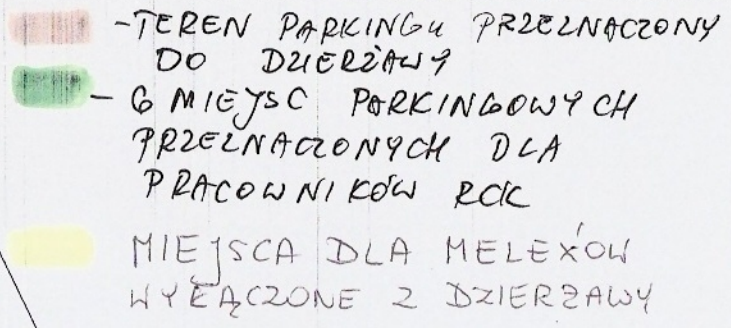 - TEREN PARKINGU PRZEZNACZONY
DO DZIERŻAWY
- 6 MIEJSC PARKINGOWYCH
PRZEZNACZONYCH DLA
PRACOWNIKÓW RCK
MIEJSCA DLA MELEXÓW
WYŁĄCZONE Z DZIERŻAWY